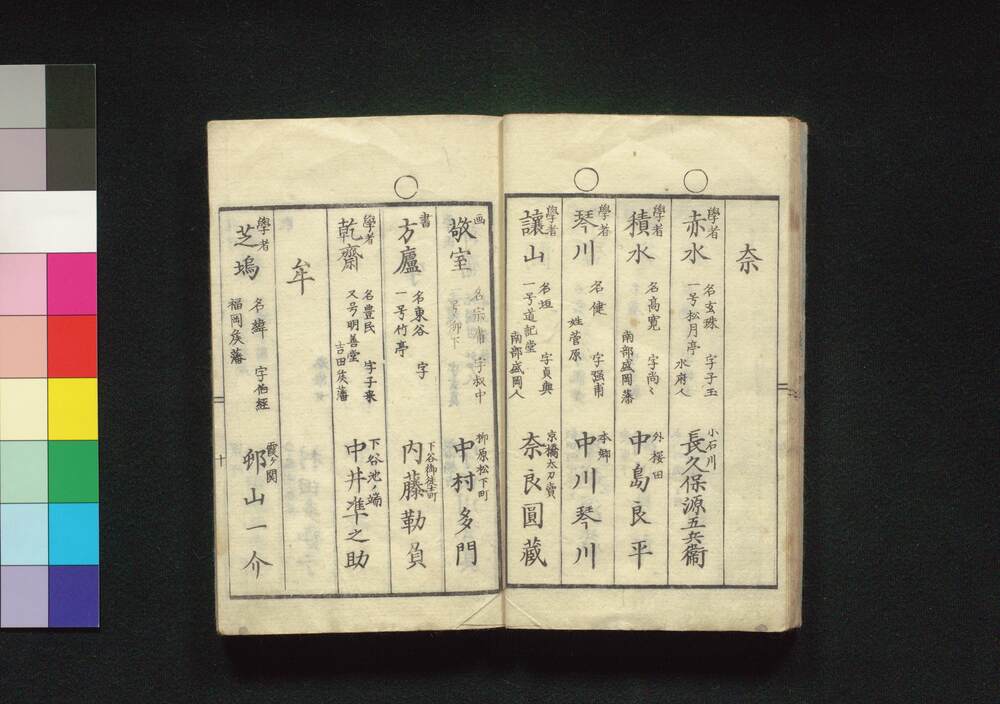 奈
學者
赤水
名玄珠 字子玉
一号松月亭 水府人
小石川
長久保源五兵衞
學者
積水
名高寛 字尚〻
南部盛岡藩
外桜田
中島良平
學者
琴川
名健 字強甫
姓菅原
本郷
中川琴川
學者
讓山
名垣 字貞興
一号道記堂 南部盛岡人
京橋太刀賣
奈良圓藏
画
敬室
名宗甫 字叔中
号御下
柳原松下町
中村多門
書
方廬
名東谷 字
一号竹亭
下谷御徒士町
内藤勒負
學者
乾齋
名豊民 字子来
又号明善堂 吉田矦藩
下谷池ノ端
中井凖之助
牟
學者
芝塢
名緯 字伯經
福岡矦藩
霞ヶ関
邨山一介
十